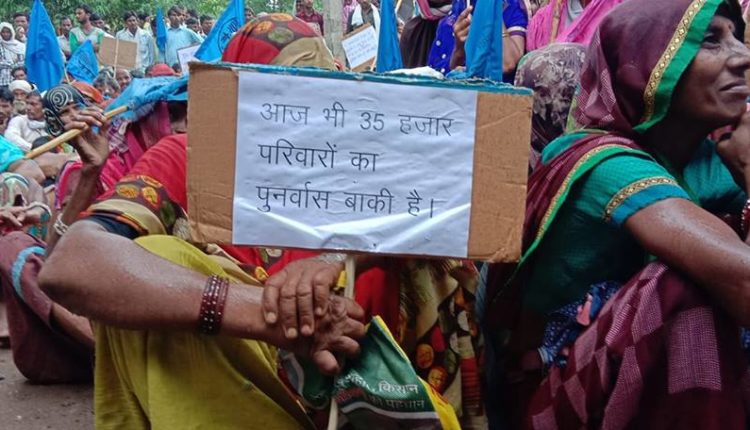 आज भी 35 हजार
परिवारों का
पुनर्वास बाकी है।
किसान
की पहचान